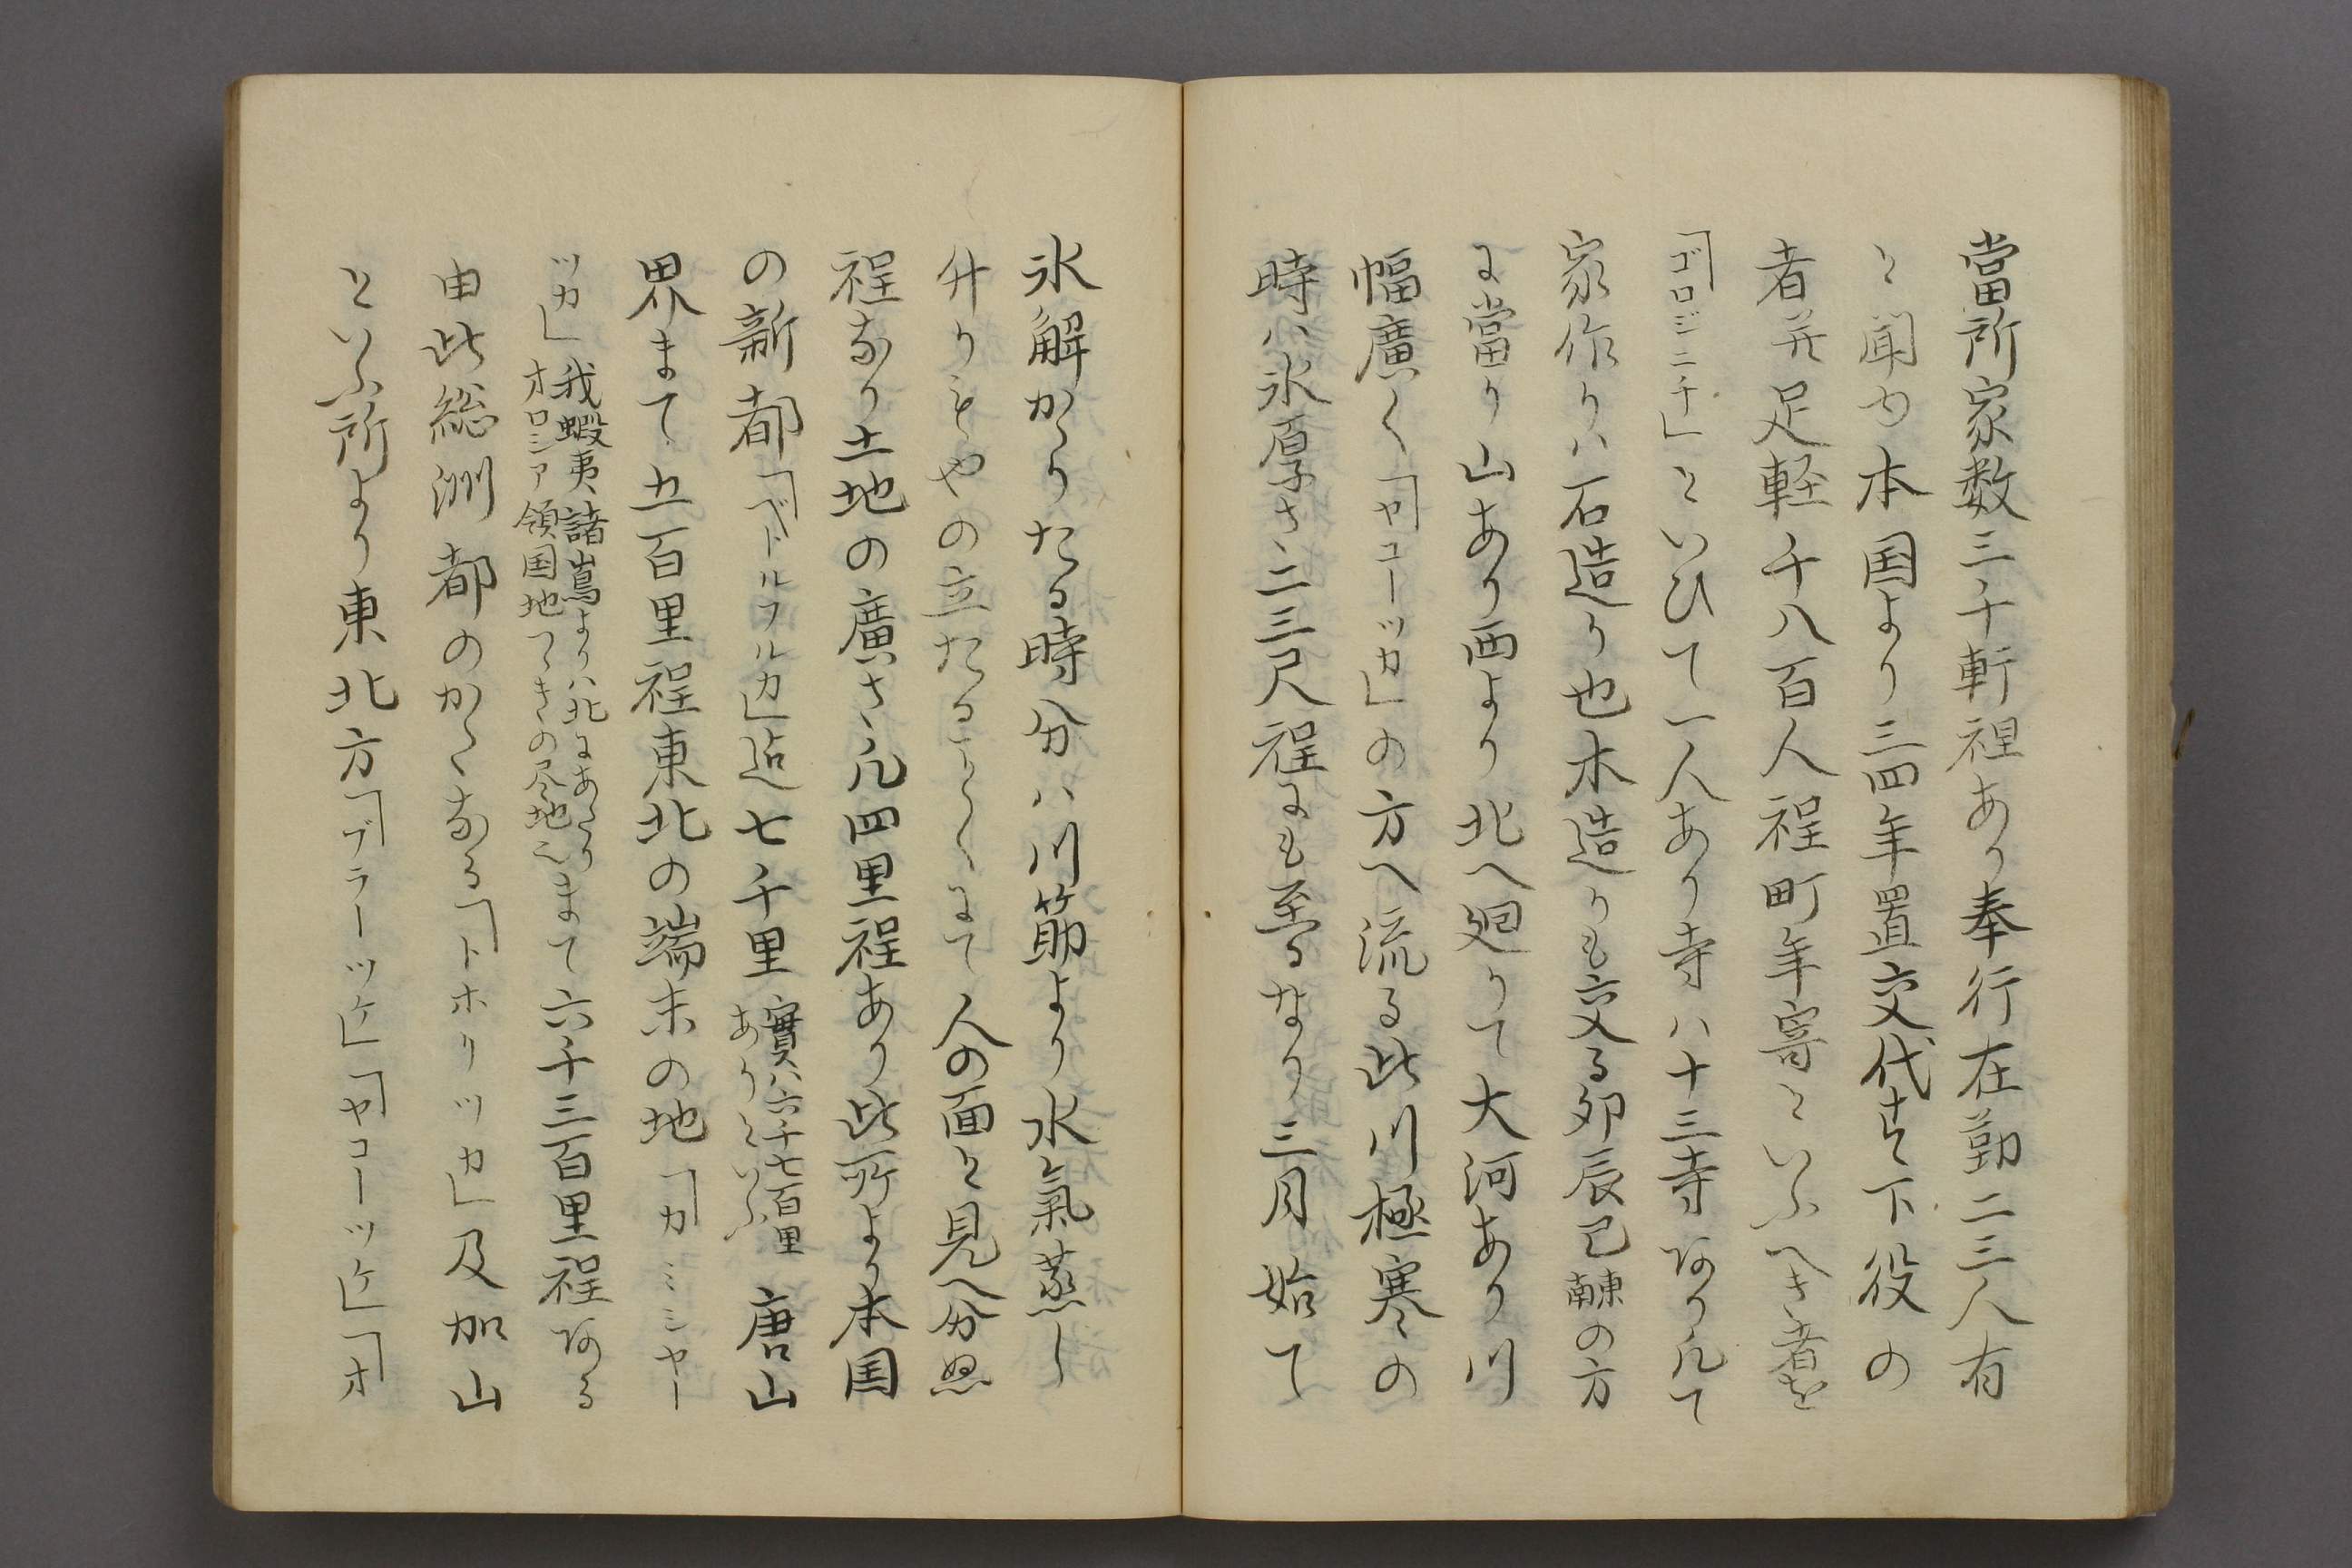 當所家数三千軒程あり奉行在勤二三人有
と聞ゆ本国より三四年置交代す下役の
者并足軽千八百人程町年寄といふへき者を
「ゴロジニチ」といひて一人あり寺ハ十三寺あり凡て
家作りハ石造り也木造りも交る卯辰巳東南の方
に當り山あり西より北へ廻りて大河あり川
幅廣く「ヤコーツカ」の方へ流る此川極寒の
時ハ氷厚さ二三尺程にも至るなり三月始て
氷解かゝりたる時分ハ川筋より水氣蒸し
升りもやの立たることくにて人の面も見へ分ぬ
程なり土地の廣さ凡四里程あり此所より本国
の新都「ペトルフルカ」迄七千里實ハ六千七百里
ありといふ唐山
界まて五百里程東北の端末の地「カミシヤー
ツカ」我蝦夷諸嶌よりハ北にあたり
オロシア領国地つゝきの尽地也まて六千三百里程ある
由此総洲都のかくなる「トホリツカ」及加山
といふ所より東北方「ブラーツケ」「ヤコーツケ」「オ